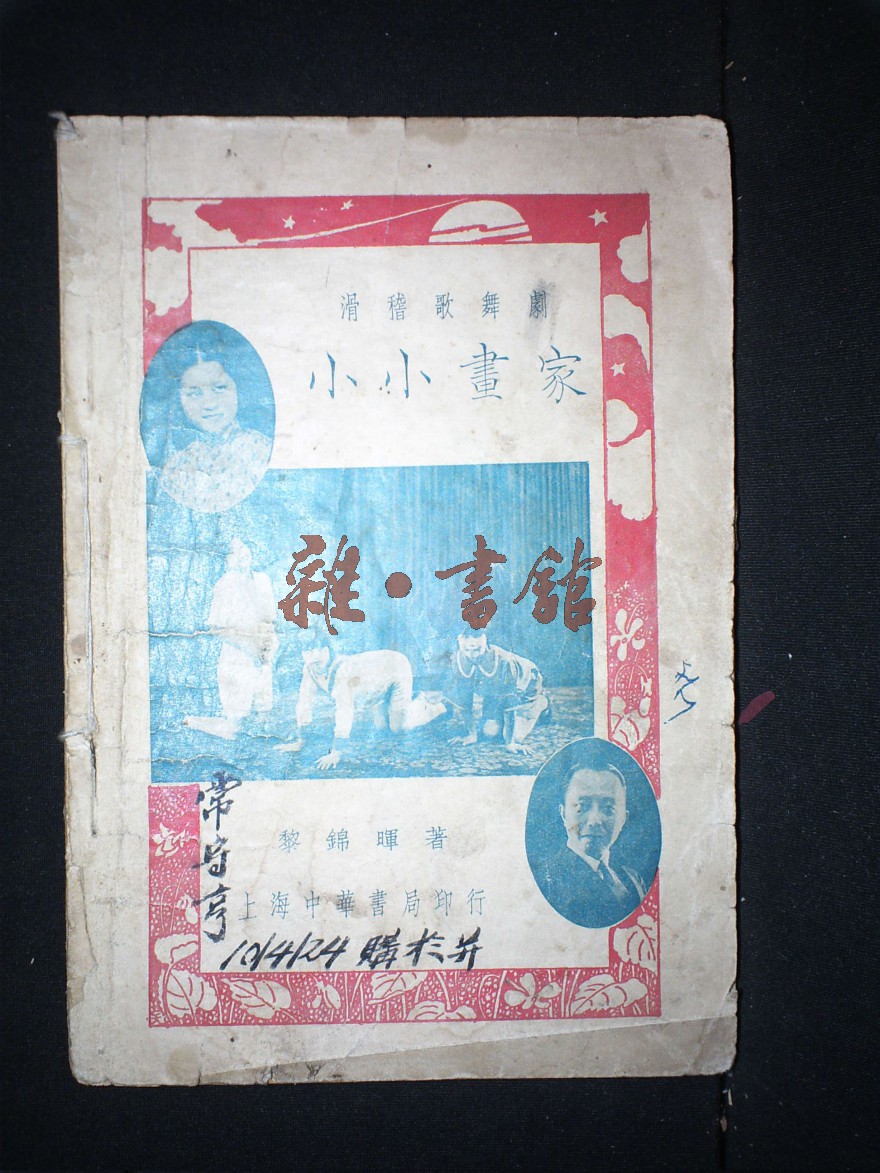 滑稽歌舞劇
小小畫家
雜·書館
黎錦暉著
上海中華書局印行
常守亨
10/4/24 購於并